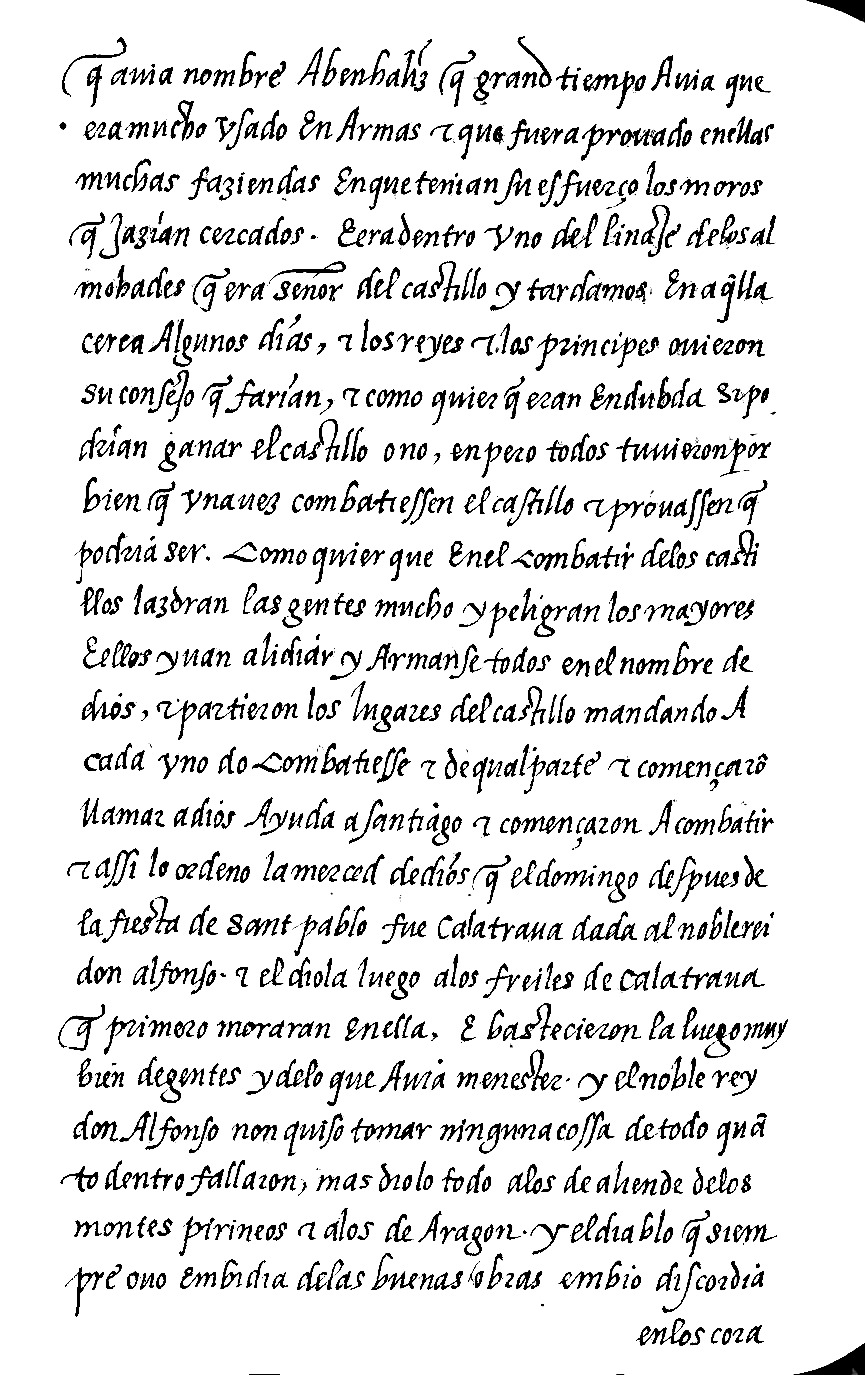 q̃ auia nombre Abenhaliz q̃ grand tiempo Auia que
era mucho vsado En Armas τ que fuera prouado enellas
muchas faziendas Enque tenian su esfuerço los moros
q̃ Jazían cercados. E era dentro vno del linaje delos al
mohades q̃ era señor del castillo y tardamos En aq̃lla
cerca Algunos días, τ los reyes τ los principes ouieron
su consejo q̃ farían, τ como quier q̃ eran Endubda si po
drían ganar el castillo o no, en pero todos tuuieron por
bien q̃ vna uez combatiessen el castillo τ prouassen q̃
podriá ser. Como quier que Enel combatir delos casti
llos lazdran las gentes mucho y peligran los mayores
E ellos yuan a lidiár y Armanse todos en el nombre de
diós, τ partieron los lugares del castillo mandando A
cada vno do combatiesse τ de qual parte τ començarõ
llamar a diós Ayuda a santiágo τ començaron A combatir
τ assi lo ordeno la merced de diós q̃ el domingo despues de
la fiesta de sant pablo fue Calatraua dada al noble rei
don alfonso. τ el diola luego alos freiles de calatraua
q̃ primero moraran Enella, E bastecieron la luego muy
bien de gentes y delo que Auiá menester. y el noble rey
don Alfonso non quiso tomar ninguna cossa de todo quã
to dentro fallaron, mas diolo todo alos de aliende delos
montes pirineos τ alos de Aragon. y el diablo q̃ siem
pre ouo Embidia delas buenas obras embio discordiá
enlos cora